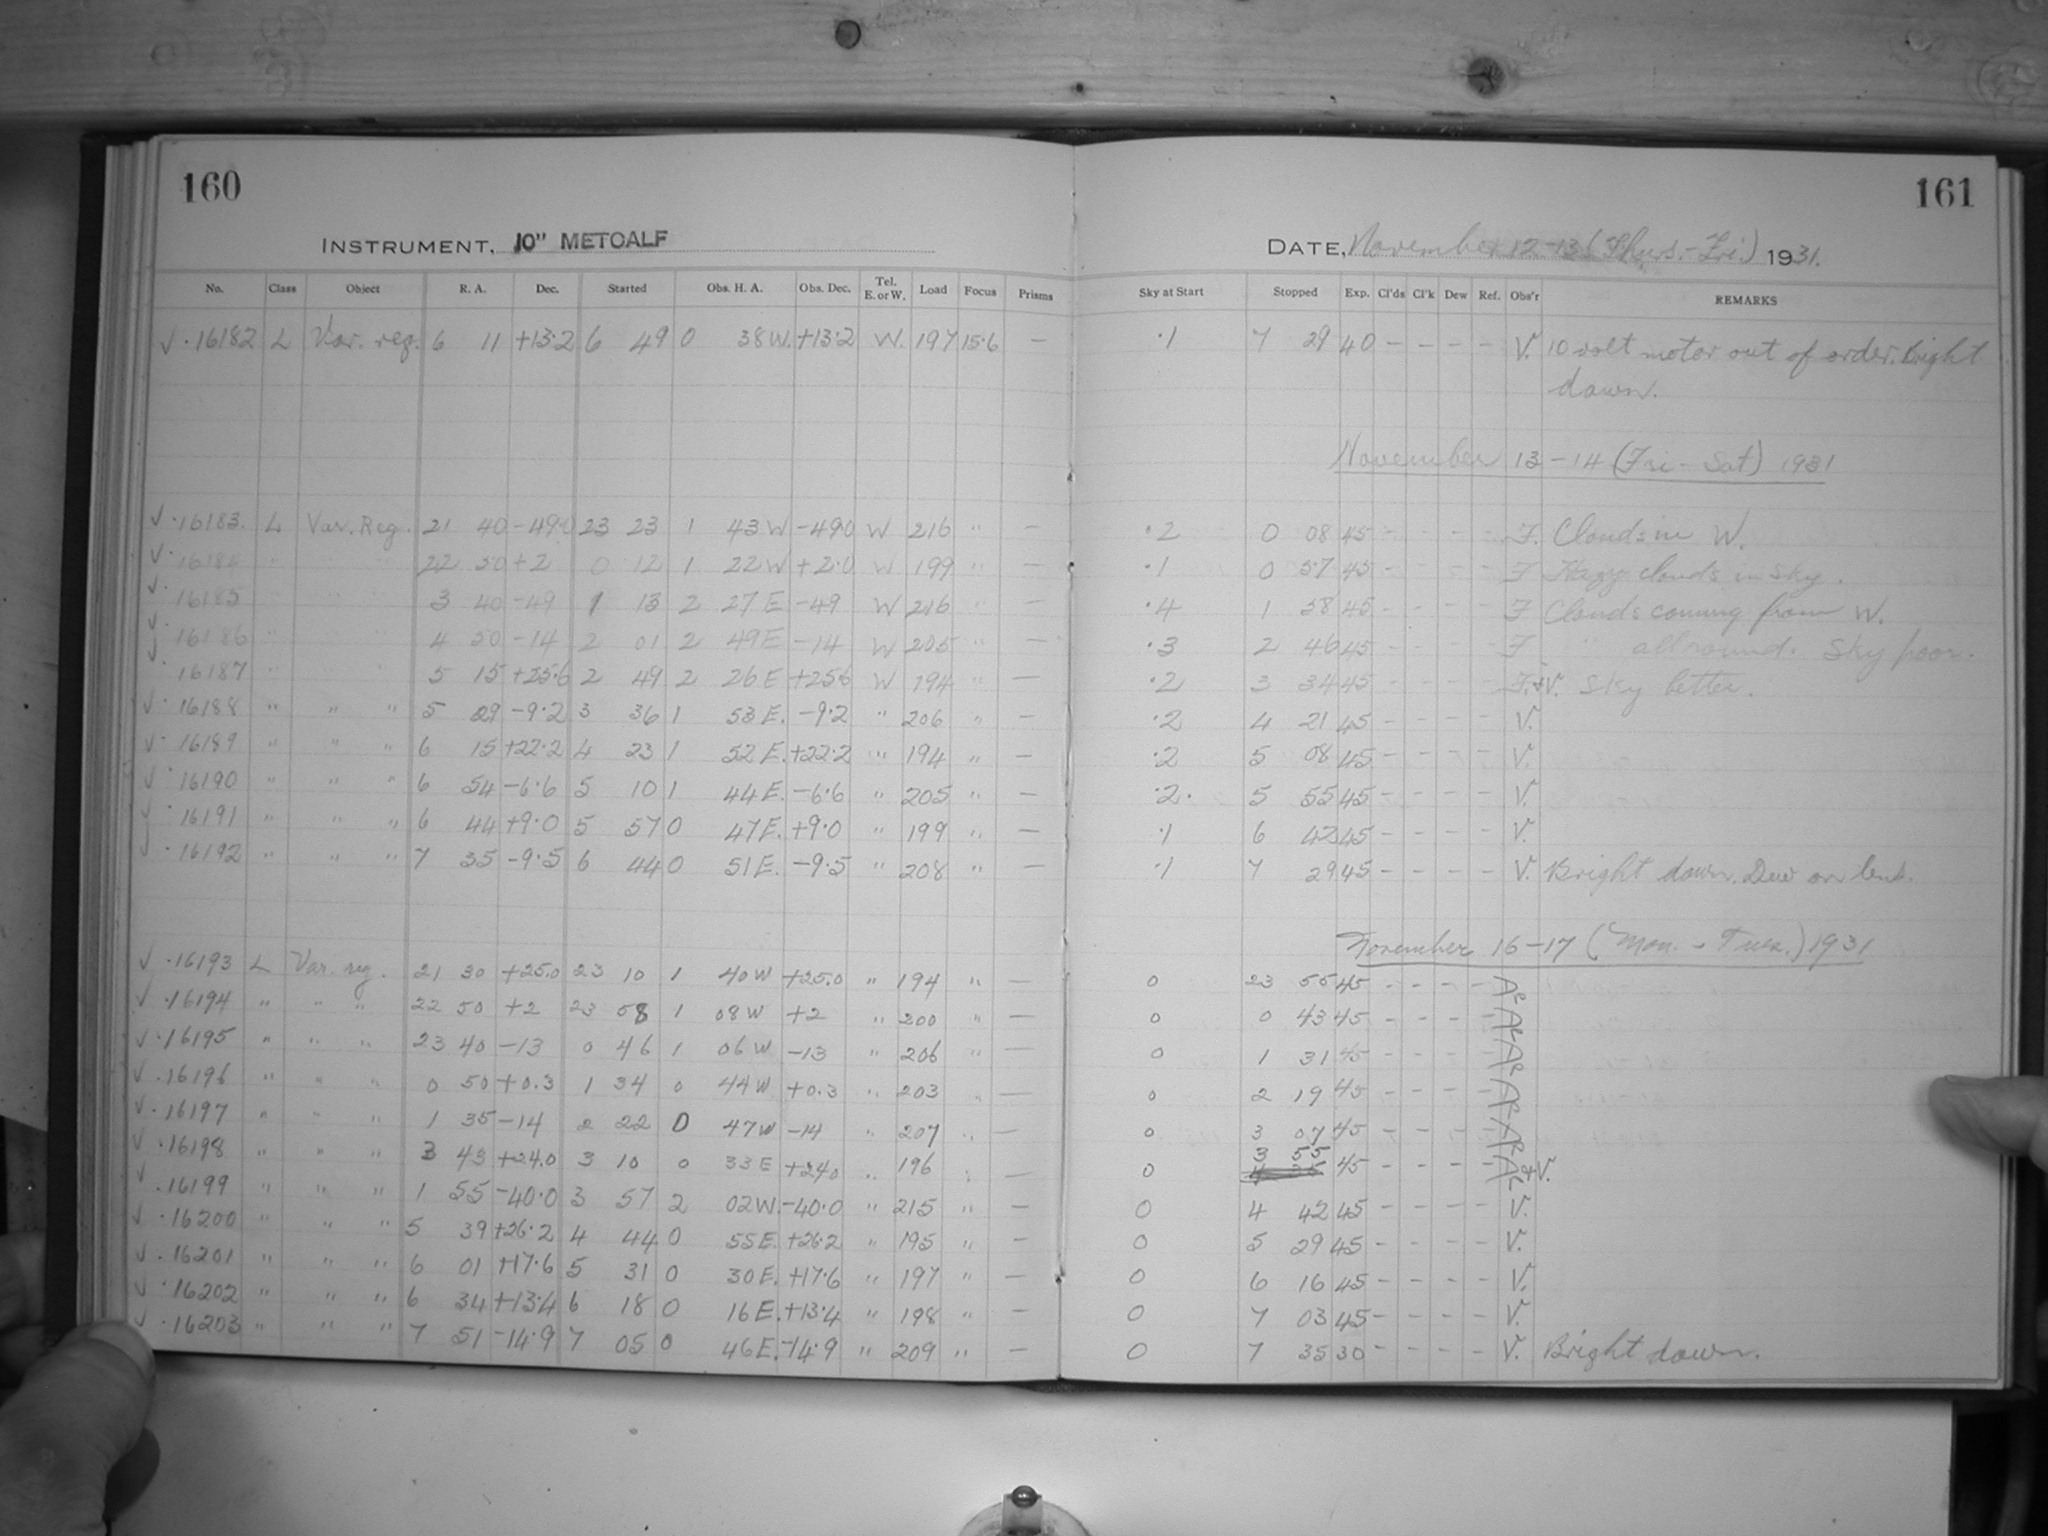 160
161
INSTRUMENT, 10" METCALF
DATE, November 12-13 (Thurs.-Fri.) 1931.
No. Class Object R. A. Dec. Started Obs. H. A. Obs. Dec. Tel. E. or W. Load Focus Prisms Sky at Start Stopped Exp. Cl'ds Cl'k Dew Ref. Obs'r REMARKS
√ · 16182 L Var. reg. 6 11 +13·2 6 49 0 38 W. +13·2 W. 197 15·6 — ·1 7 29 40 - - - - V. 10 volt motor out of order. Bright
dawn.
November 13-14 (Fri - Sat) 1931
√ · 16183. L Var. Reg. 21 40 -49·0 23 23 1 43 W -49.0 W 216 " — ·2 0 08 45 - - - - F. Clouds in W.
√ · 16184 " " " 22 50 +2 0 12 1 22 W +2·0 W 199 " — ·1 0 57 45 - - - - F Hazy clouds in sky.
√ · 16185 " " " 3 40 -49 1 13 2 27 E -49 W 216 " — ·4 1 58 45 - - - - F Clouds coming from W.
√ · 16186 " " " 4 50 -14 2 01 2 49 E -14 W 205 " — ·3 2 46 45 - - - - F " all round. Sky poor.
√ · 16187 " " " 5 15 +25·6 2 49 2 26 E +25.6 W 194 " — ·2 3 34 45 - - - - F.+V. Sky better.
√ · 16188 " " " 5 29 -9·2 3 36 1 53 E. -9·2 " 206 " — ·2 4 21 45 - - - - V.
√ · 16189 " " " 6 15 +22·2 4 23 1 52 E. +22·2 " 194 " — ·2 5 08 45 - - - - V.
√ · 16190 " " " 6 54 -6·6 5 10 1 44 E. -6·6 " 205 " — ·2· 5 55 45 - - - - V.
√ · 16191 " " " 6 44 +9·0 5 57 0 47 E. +9·0 " 199 " — ·1 6 42 45 - - - - V.
√ · 16192 " " " 7 35 -9·5 6 44 0 51 E. -9·5 " 208 " — ·1 7 29 45 - - - - V. Bright dawn. Dew on lens.
November 16-17 (Mon. - Tues.) 1931
√ · 16193 L Var. reg. 21 30 +25.0 23 10 1 40 W +25.0 " 194 " — 0 23 55 45 - - - -
√ · 16194 " " " 22 50 +2 23 58 1 08 W +2 " 200 " — 0 0 43 45 - - - -
√ · 16195 " " " 23 40 -13 0 46 1 06 W -13 " 206 " — 0 1 31 45 - - - -
√ · 16196 " " " 0 50 +0.3 1 34 0 44 W +0.3 " 203 " — 0 2 19 45 - - - -
√ · 16197 " " " 1 35 -14 2 22 0 47 W -14 " 207 " — 0 3 07 45 - - - -
√ · 16198 " " " 3 43 +24.0 3 10 0 33 E +24.0 " 196 " — 0 3 55 45 - - - - +V.
√ · 16199 " " " 1 55 -40·0 3 57 2 02 W. -40·0 " 215 " — 0 4 42 45 - - - - V.
√ · 16200 " " " 5 39 +26·2 4 44 0 55 E. +26·2 " 195 " — 0 5 29 45 - - - - V.
√ · 16201 " " " 6 01 +17·6 5 31 0 30 E. +17·6 " 197 " — 0 6 16 45 - - - - V.
√ · 16202 " " " 6 34 +13·4 6 18 0 16 E. +13·4 " 198 " — 0 7 03 45 - - - - V.
√ · 16203 " " " 7 51 -14·9 7 05 0 46 E. -14·9 " 209 " — 0 7 35 30 - - - - V. Bright dawn.